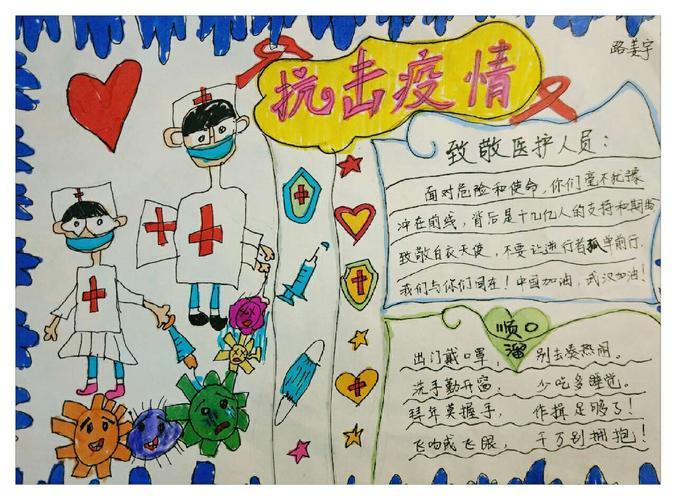 抗击疫情
路姜宇
致敬医护人员：
面对危险和使命，你们毫不犹豫
冲在前线，背后是十几亿人的支持和期盼
致敬白衣天使，不要让逆行者孤单前行，
我们与你们同在！中国加油，武汉加油！
顺口
溜
出门戴口罩，别去凑热闹。
洗手勤开窗，少吃多睡觉。
拜年莫握手，作揖足够了！
飞吻或飞眼，千万别拥抱！